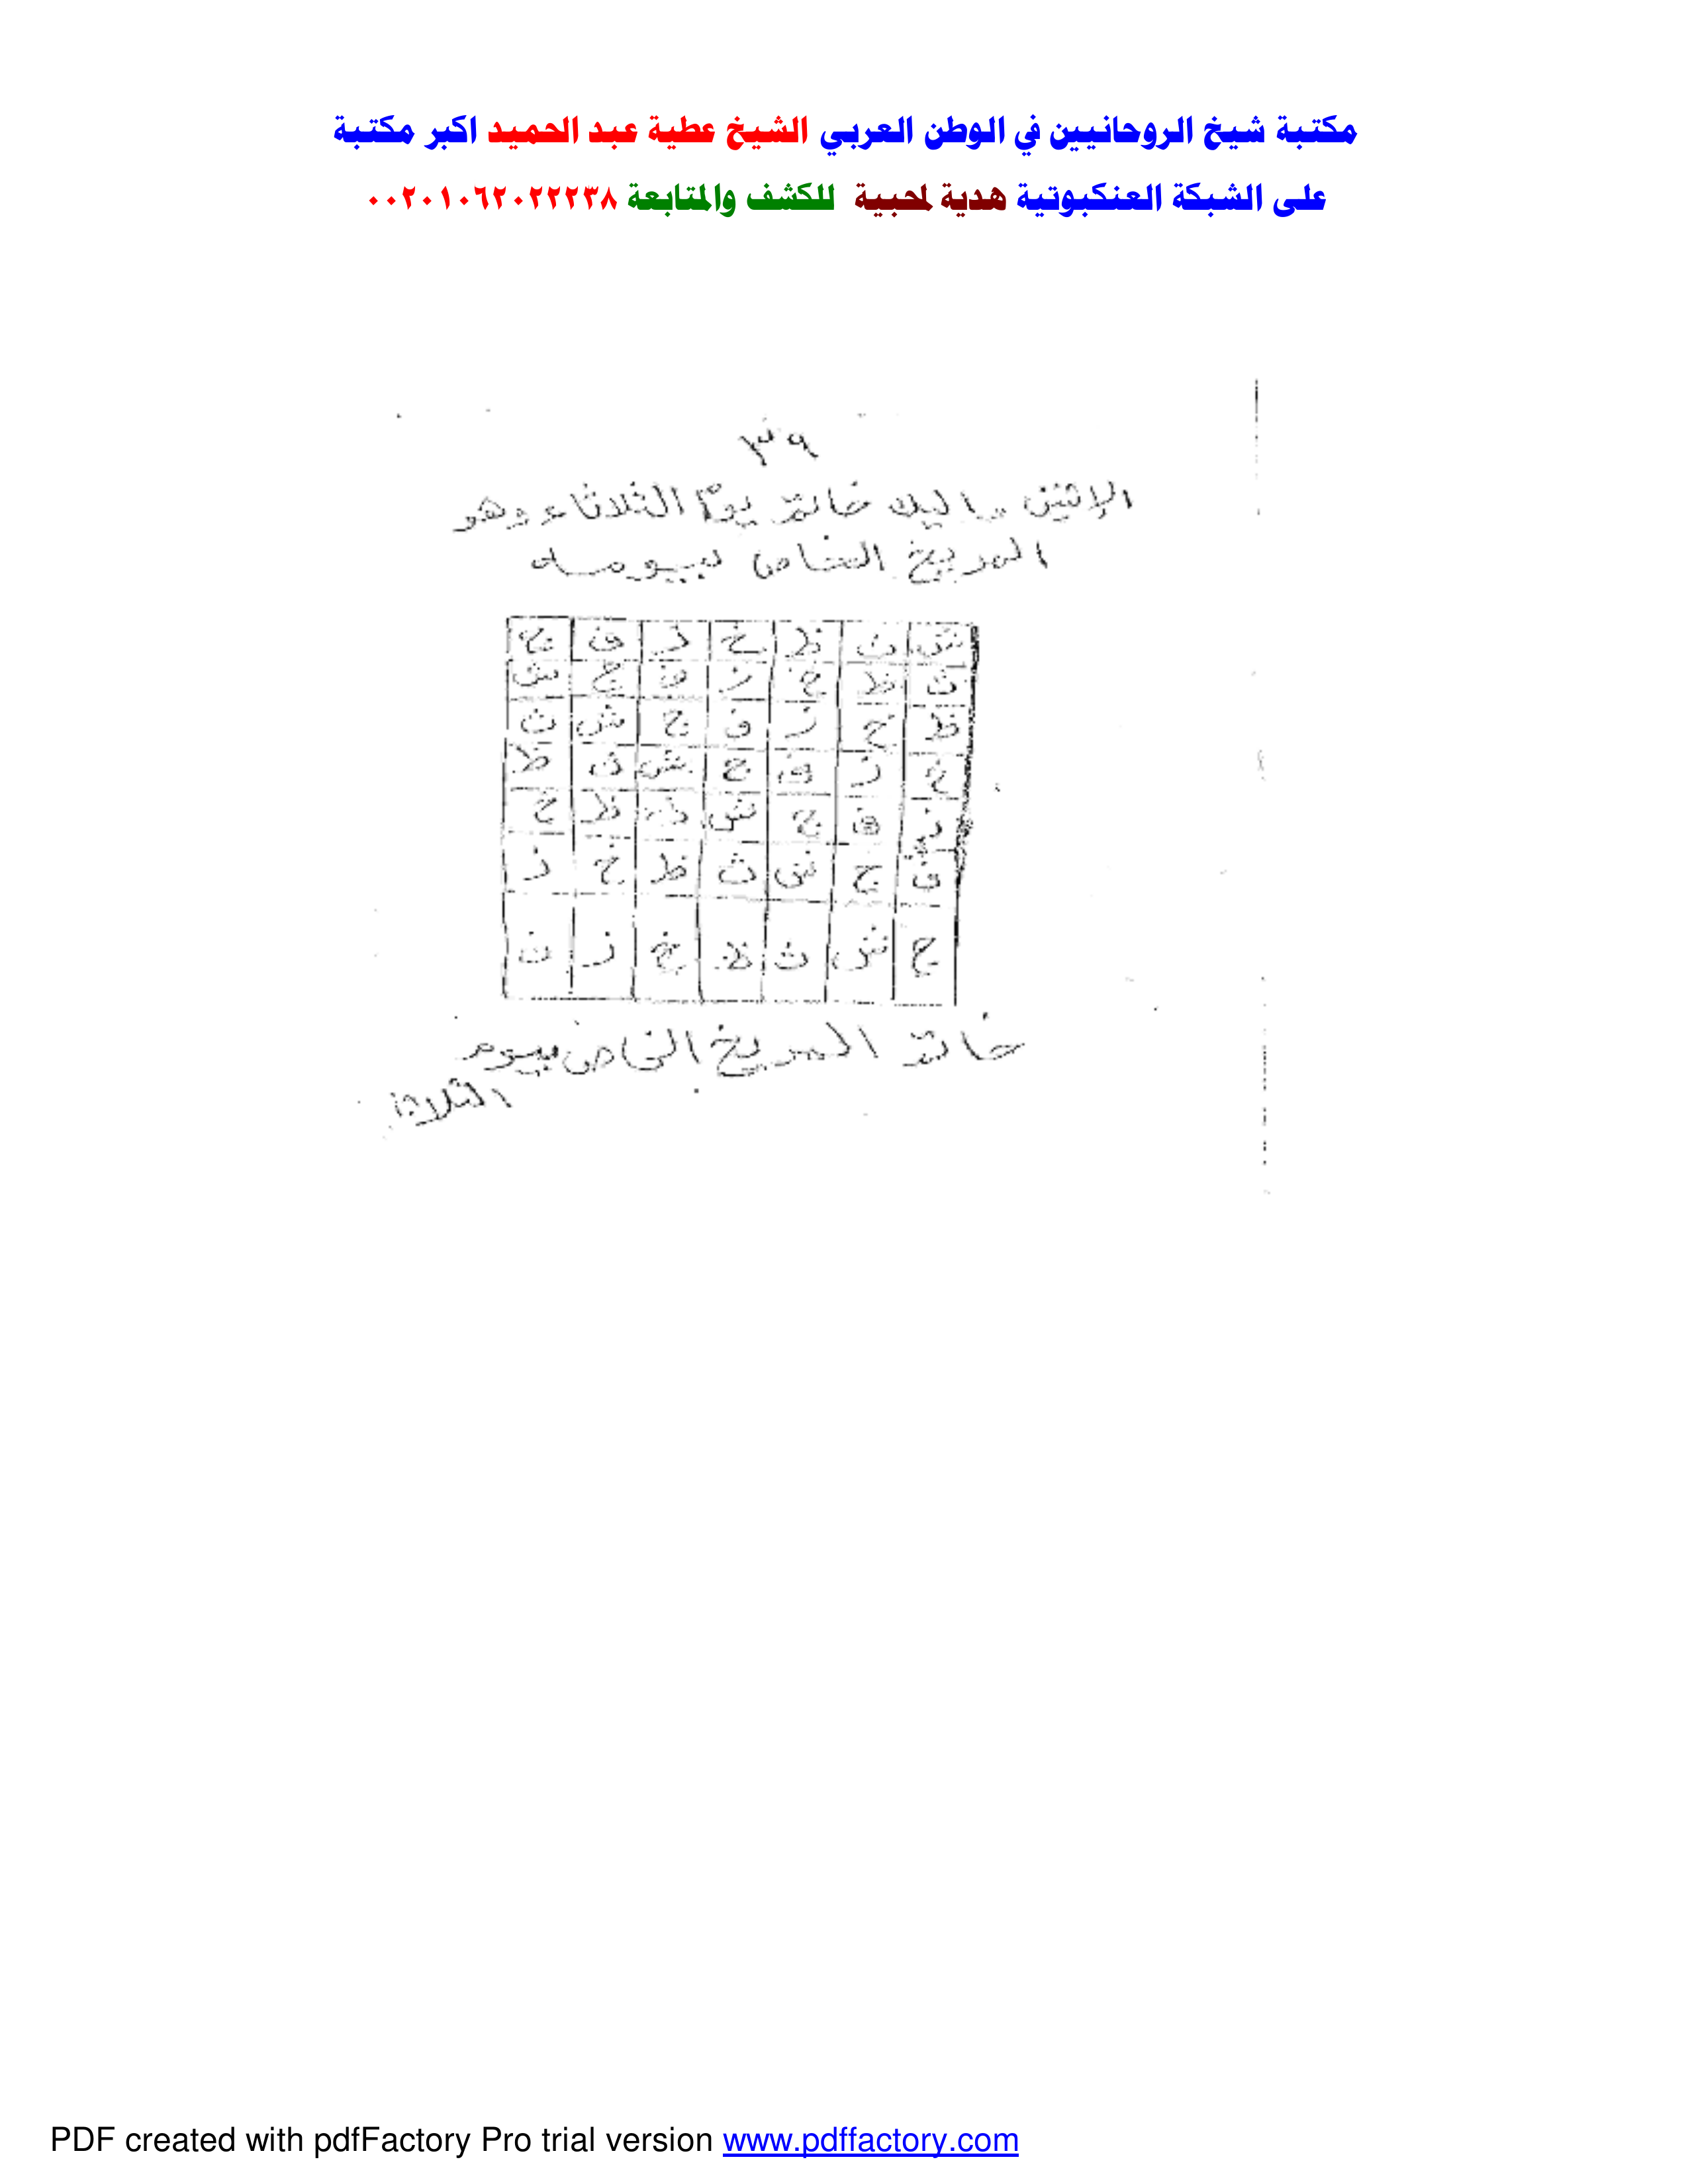 مكتبة شيخ الروحانيين في الوطن العربي الشيخ عطية عبد الحميد اكبر مكتبة
على الشبكة العنكبوتية هدية لمحبية للكشف والمتابعة ٠٠٢٠١٠٦٢٠٢٢٢٣٨
٣٩
الإثنين واليك خاتم يوم الثلاثاء وهو
المريخ الخاص بيومه
ش ث ظ خ ز ف ج
ث ظ خ ز ف ج ش
ظ خ ز ف ج ش ث
خ ز ف ج ش ث ظ
ز ف ج ش ث ظ خ
ف ج ش ث ظ خ ز
ج ش ث ظ خ ز ف
خاتم المريخ الخاص بيوم
الثلاثاء
PDF created with pdfFactory Pro trial version www.pdffactory.com